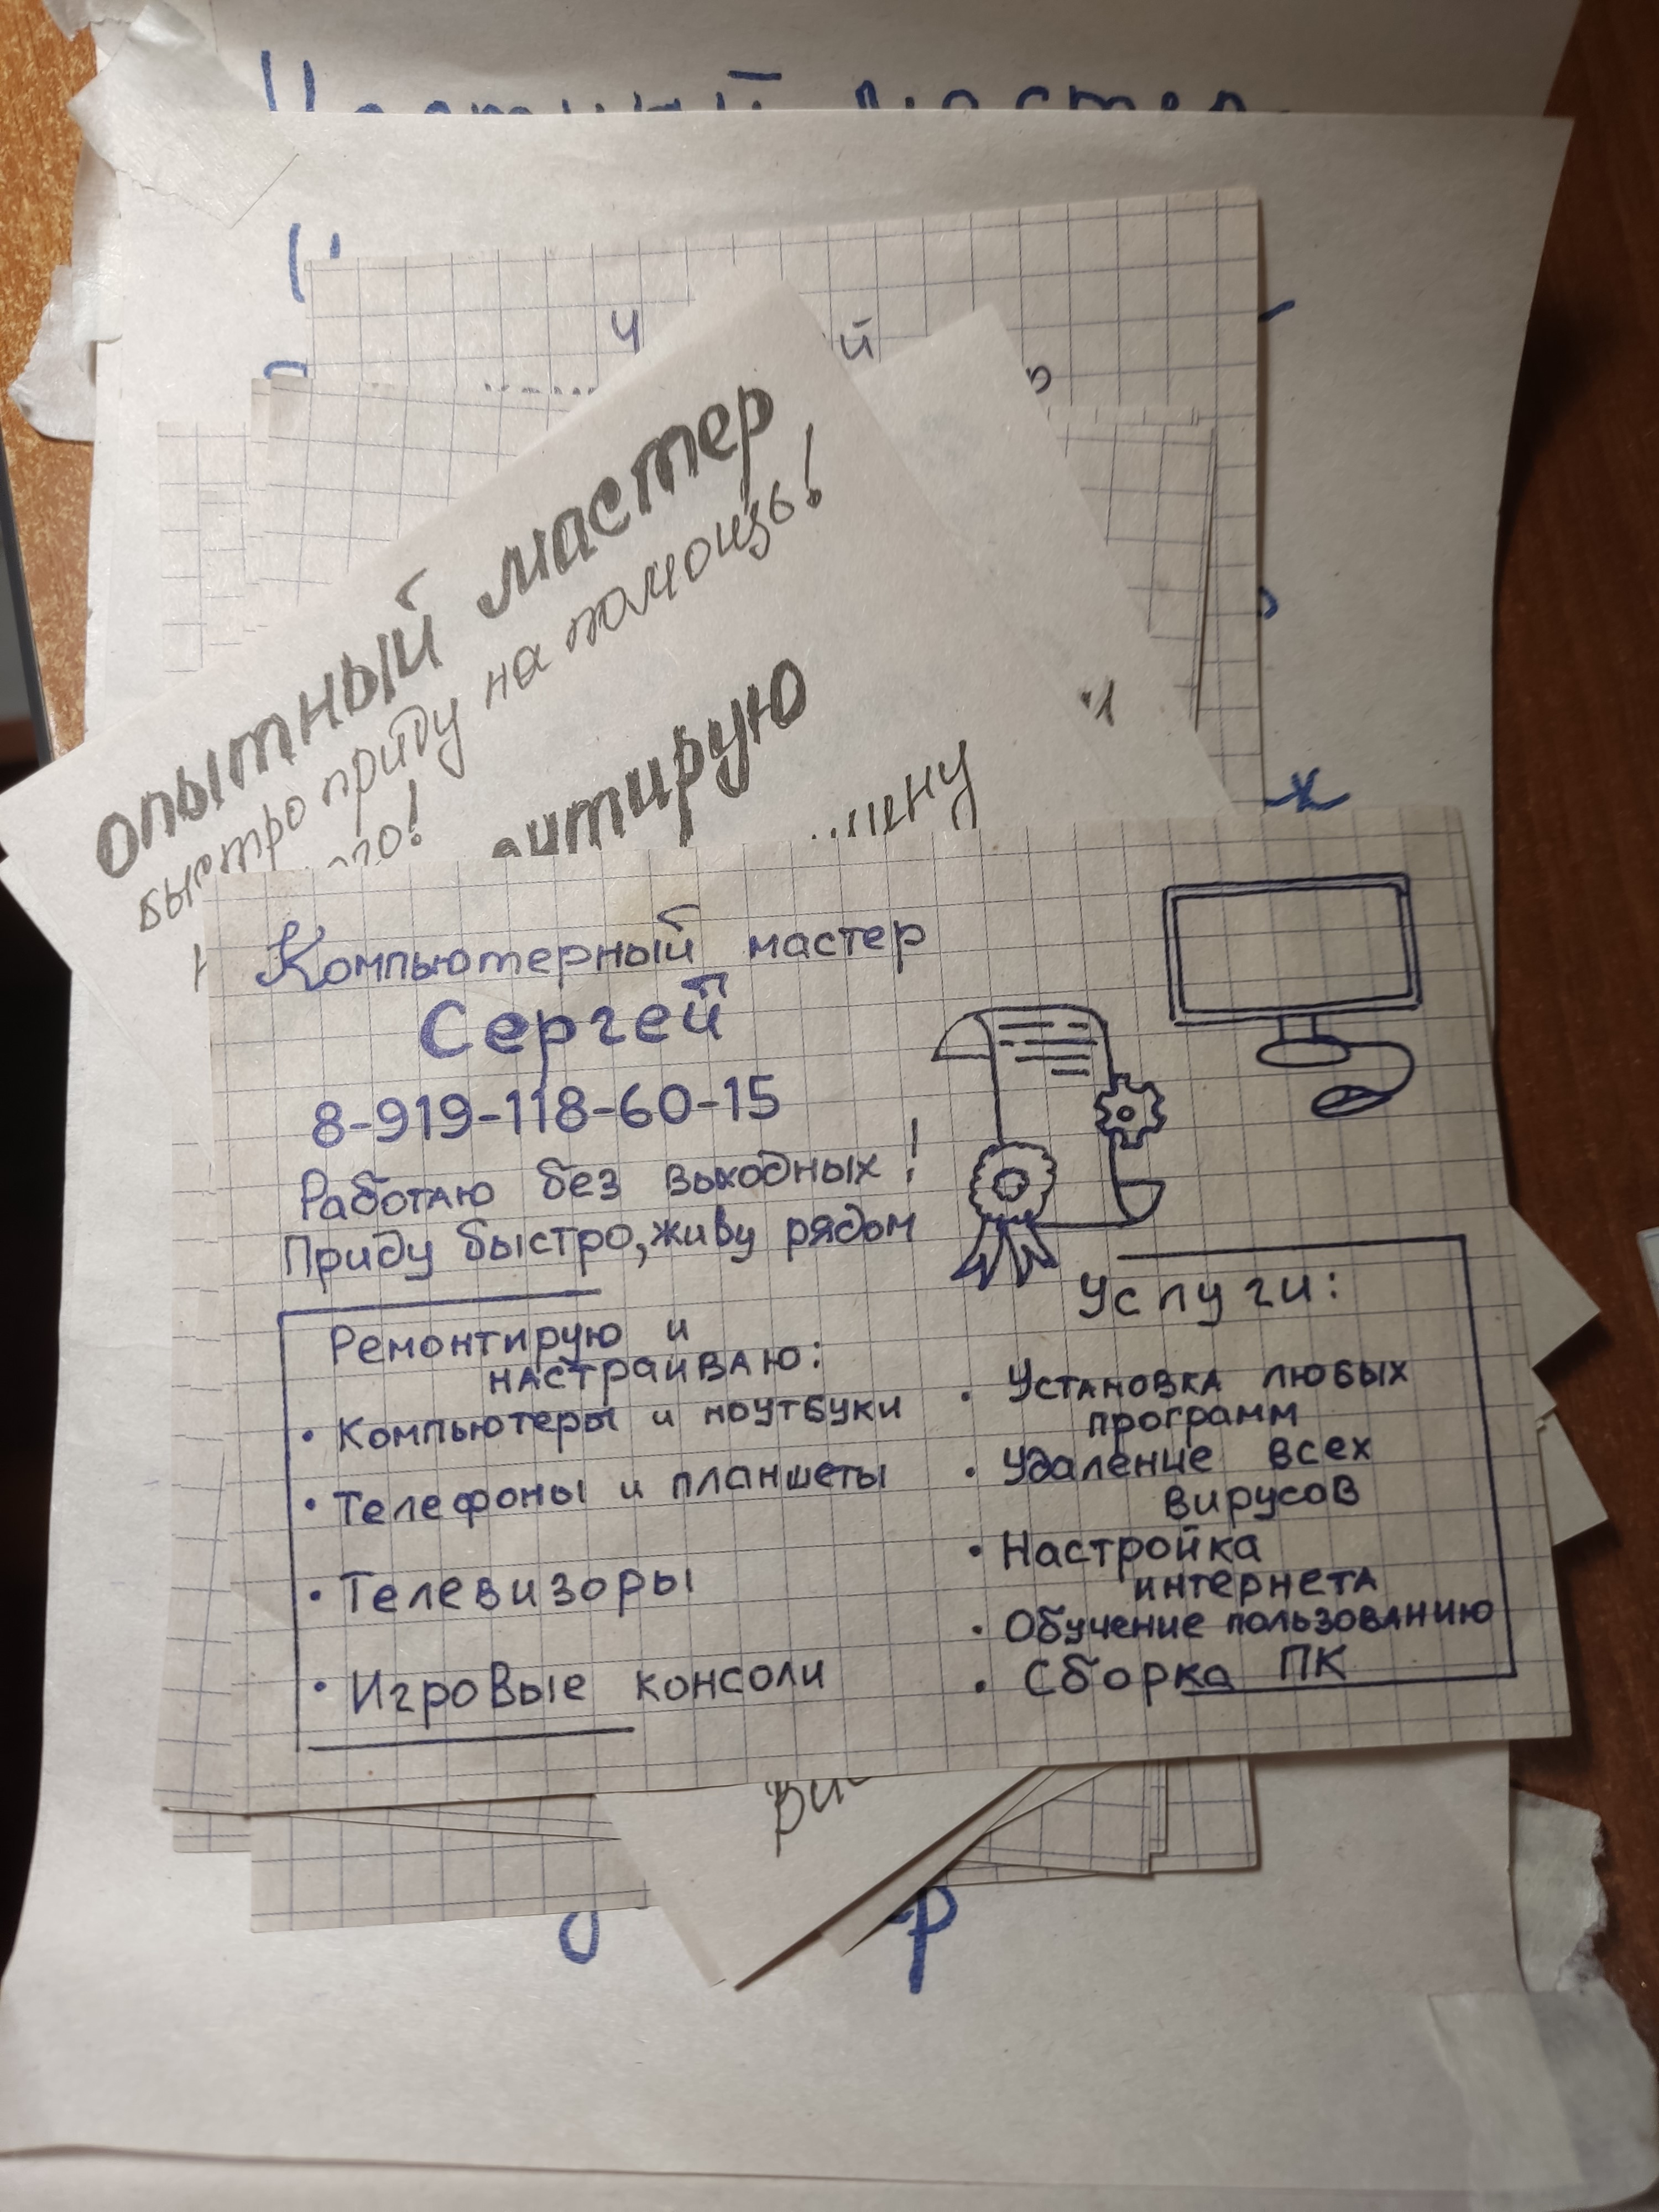 опытный мастер
быстро приду на помощь!
Компьютерный мастер
Сергей
8-919-118-60-15
Работаю без выходных!
Приду быстро, живу рядом
Ремонтирую и
настраиваю:
• Компьютеры и ноутбуки
• Телефоны и планшеты
• Телевизоры
• Игровые консоли
Услуги:
• Установка любых
программ
• Удаление всех
вирусов
• Настройка
интернета
• Обучение пользованию
• Сборка ПК